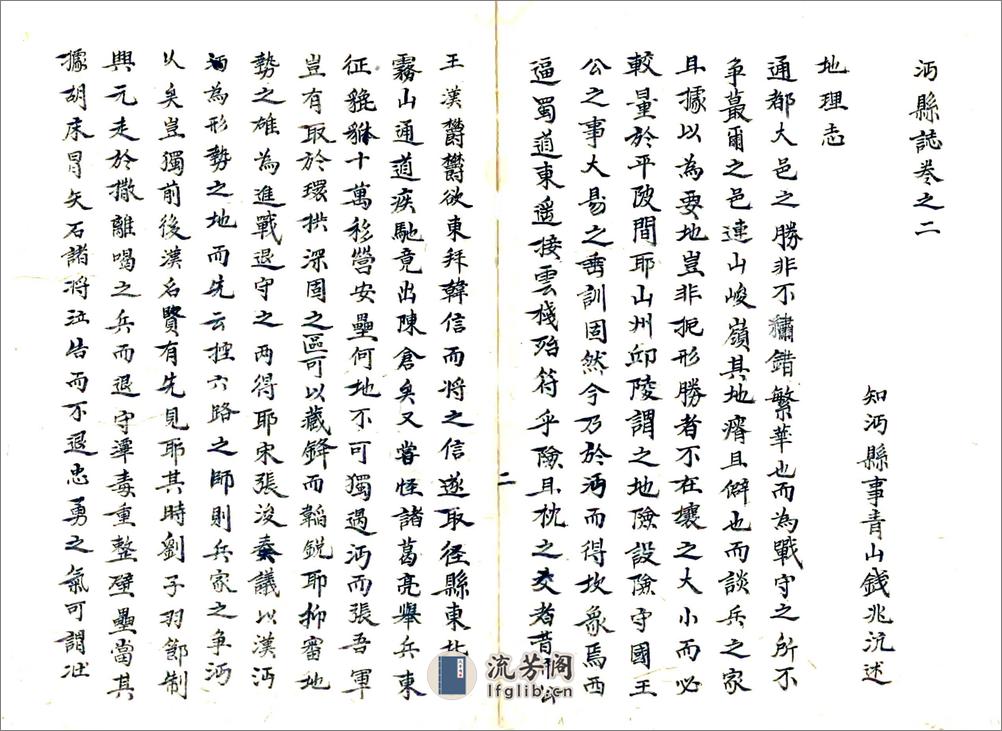 沔縣誌卷之二
知沔縣事青山錢兆沆述
地理志
通都大邑之勝非不繡錯繁華也而為戰守之所不
爭蕞爾之邑連山峻嶺其地瘠且僻也而談兵之家
且據以為要地豈非扼形勝者不在壤之大小而必
較量於平陂間耶山州邱陵謂之地險設險守國王
公之事大易之垂訓固然今乃於沔而得坎象焉西
逼蜀道東遥接雲棧殆符乎險且枕之爻者昔
二
王漢鬱鬱欲東拜韓信而將之信遂取径縣東北
霧山通道疾馳竟出陳倉矣又嘗怪諸葛亮舉兵東
征貔貅十萬移營安壘何地不可獨過沔而張吾軍
豈有取於環拱深固之區可以藏鋒而韜銳耶抑審地
勢之雄為進戰退守之两得耶宋張浚奏議以漢沔
為形勢之地而先云控六路之師則兵家之争沔
以矣豈獨前後漢名賢有先見耶其時劉子羽節制
興元走於撒離喝之兵而退守潭毒重整壁壘當其
據胡床冒矢石諸將泣告而不退忠勇之氣可謂壯
流芳阁
lfglib.cn